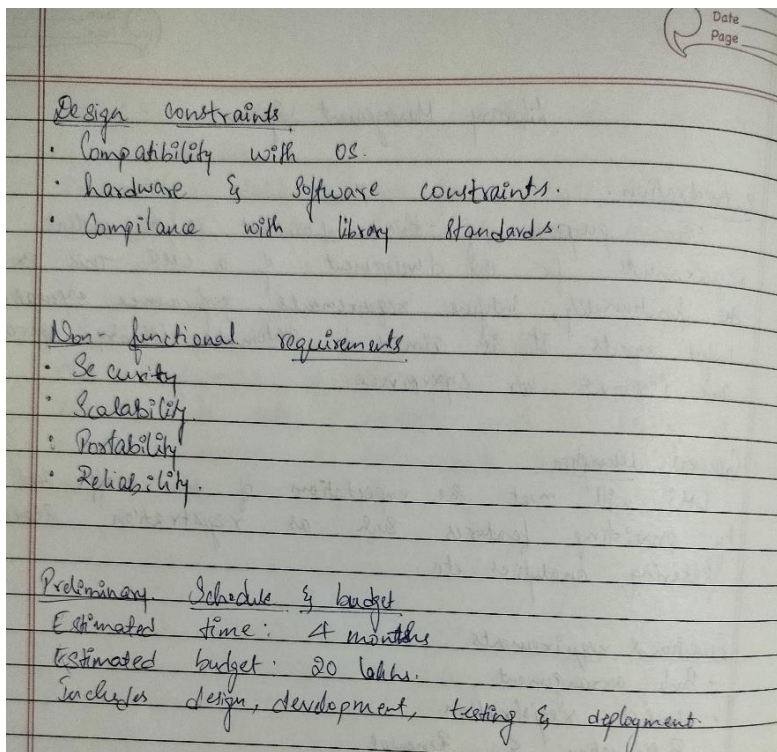 Date
Page
Design constraints
• Compatibility with OS.
• hardware & Software constraints.
• Compilance with library Standards.
Non-functional requirements
• Security
• Scalability
• Portability
• Reliability.
Preliminary Schedule & budget
Estimated time: 4 months
Estimated budget: 20 lakhs.
Includes design, development, testing & deployment.